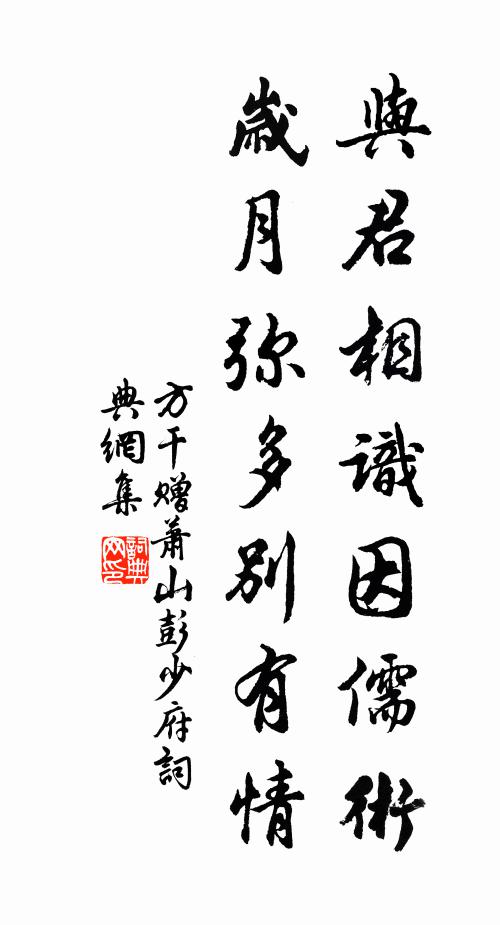 與君相識因儒術
歲月弥多別有情
方干贈蕭山彭少府詞
典網集
詞典網印